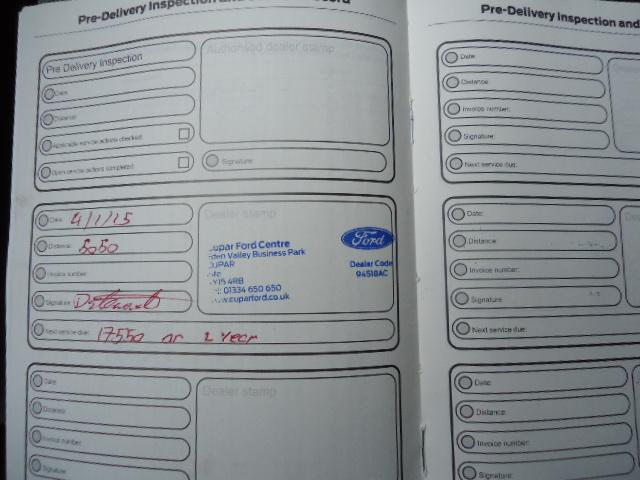 Pre-Delivery Inspection and
Pre Delivery Inspection
Authorised dealer stamp
Date:
Distance:
Applicable service actions checked:
Open service actions completed:
Signature:
Date: 4/1/15
Distance:
Invoice number:
Signature:
Next service due: 17550 or 1 Year
Dealer stamp
upar Ford Centre
den Valley Business Park
UPAR
Y15 4RB
: 01334 650 650
.cuparford.co.uk
Ford
Dealer Code
94518AC
Date:
Distance:
Invoice number:
Signature:
Dealer stamp
Pre-Delivery Inspection and
Date:
Distance:
Invoice number:
Signature:
Next service due:
Date:
Distance:
Invoice number:
Signature
Next service due:
Date:
Distance:
Invoice number:
Signature: